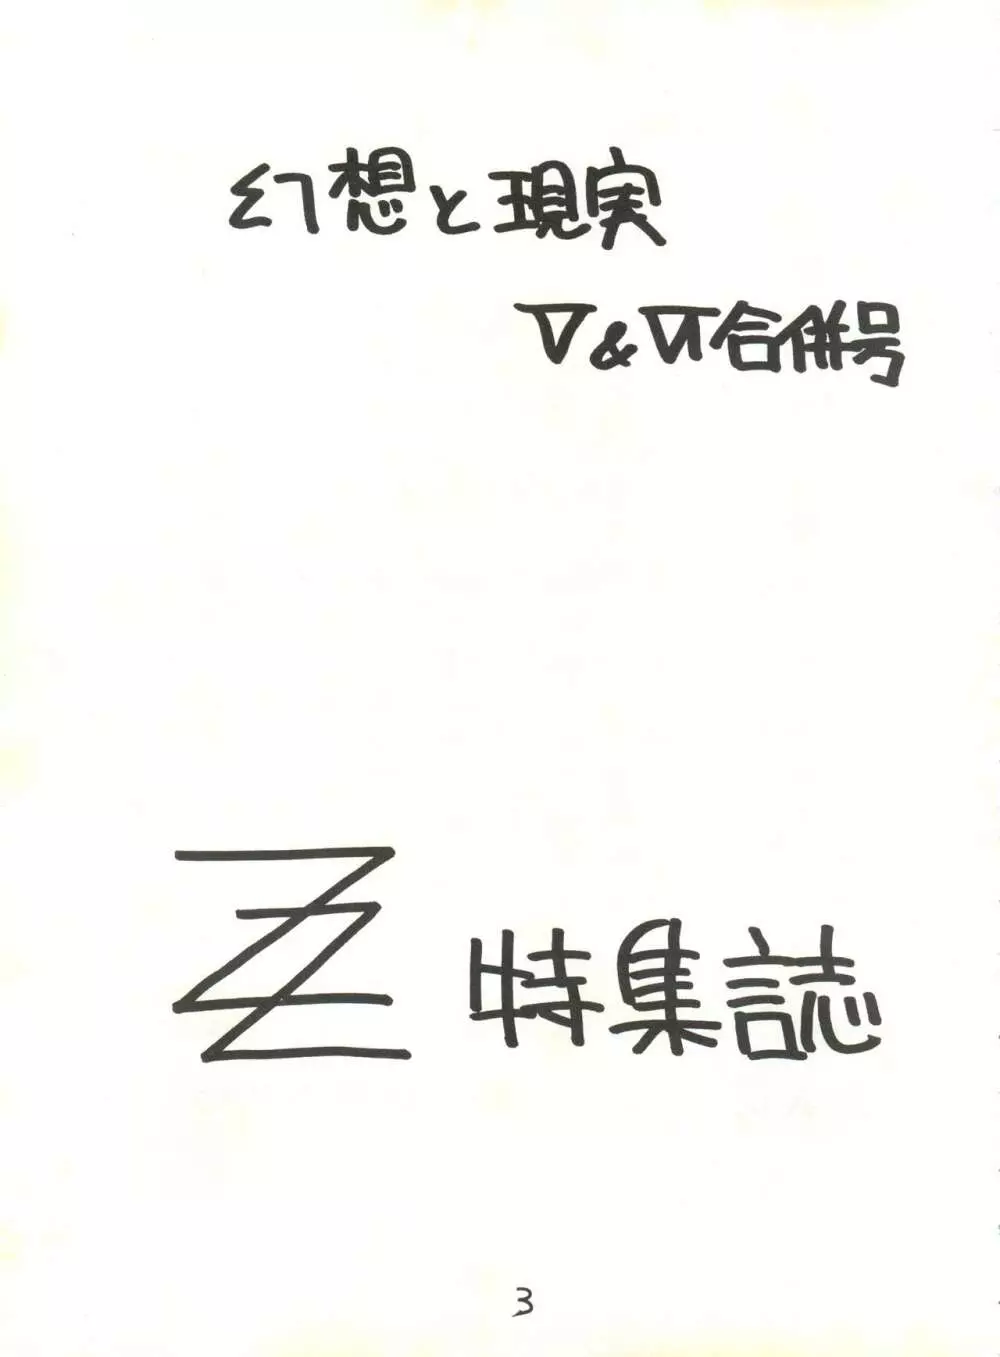 幻想と現実
V&VI合併号
ZZ特集誌
3